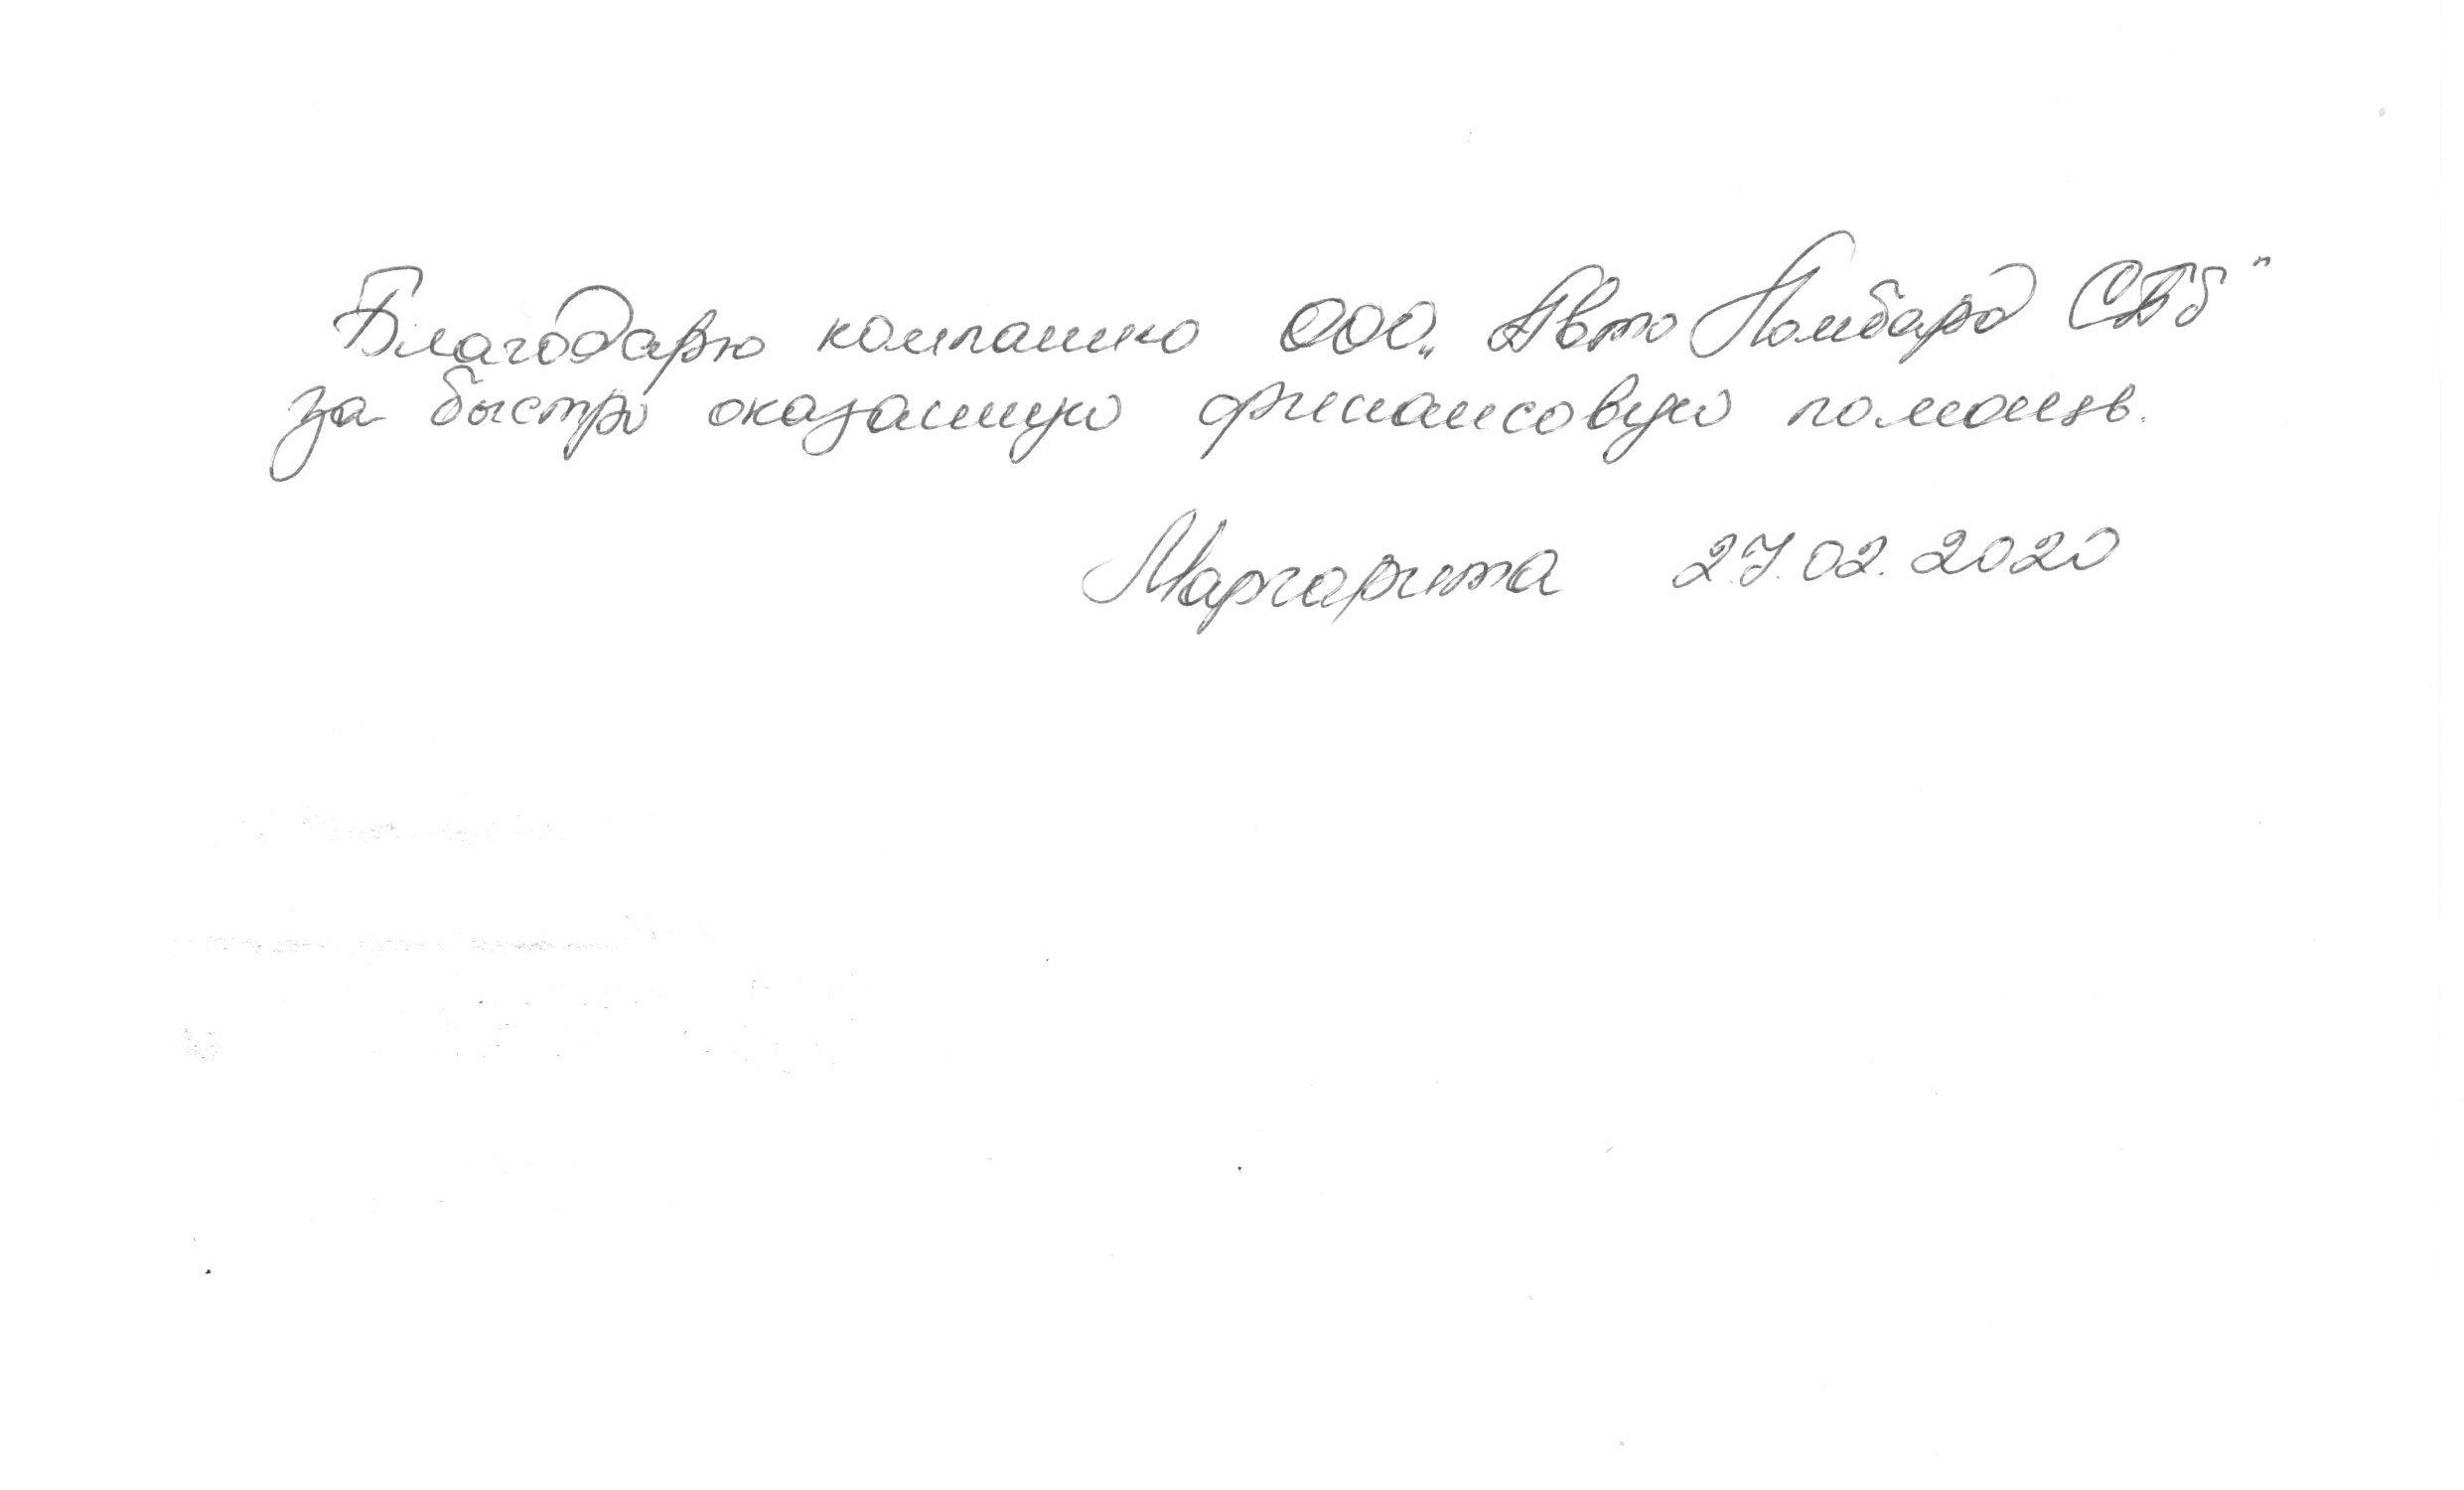 Благодарю компанию ООО „Авто Ломбард СПб"
за быстро оказанную финансовую помощь.
Маргарита 27.02.2020